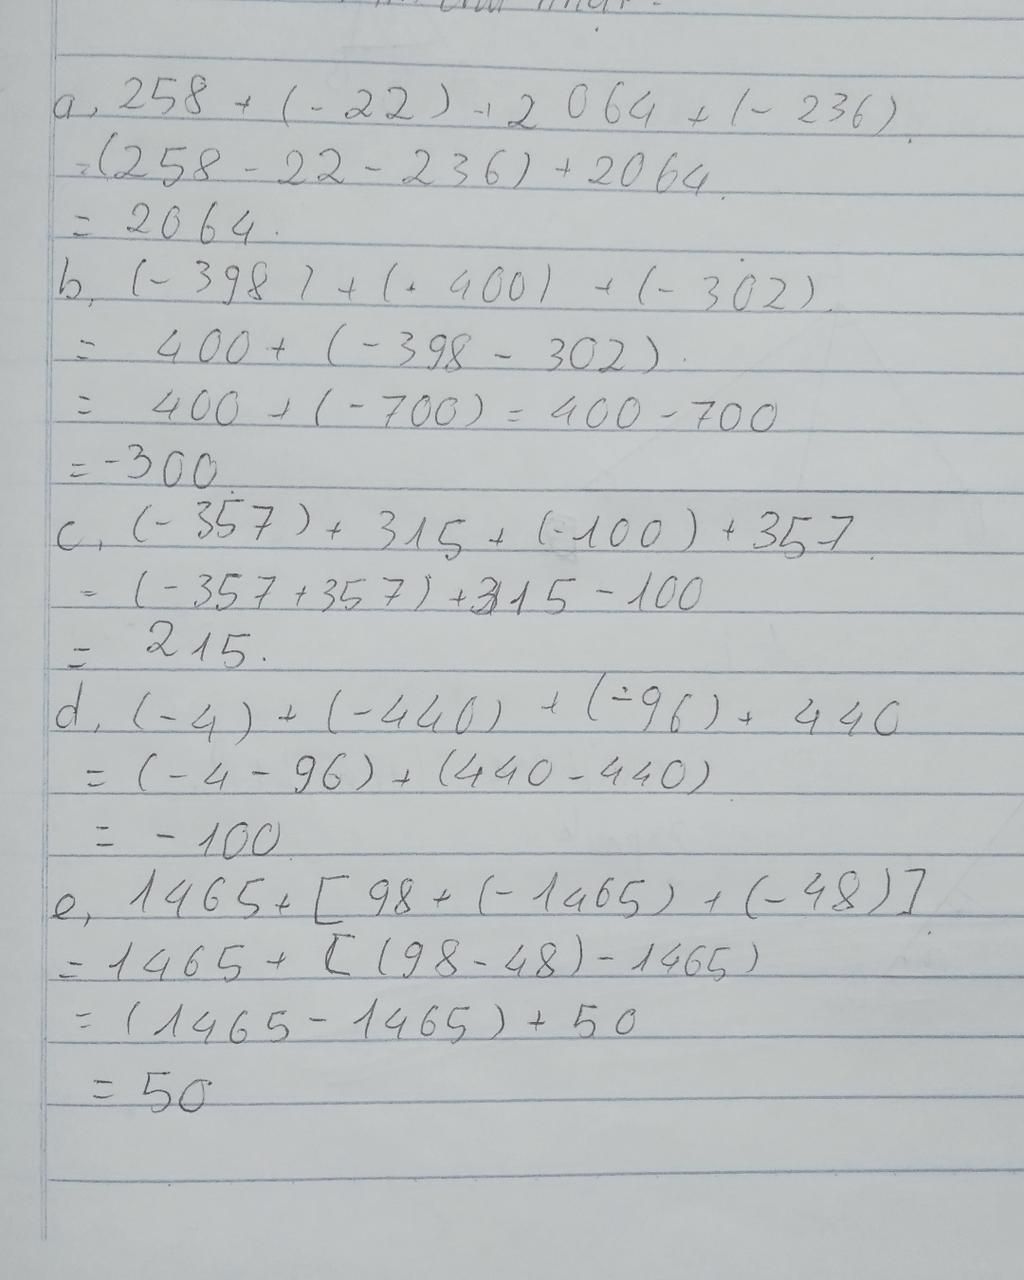 a, 258 + (-22) + 2064 + (-236).
=(258 - 22 - 236) + 2064.
= 2064.
b, (-398) + (+400) + (-302).
= 400 + (-398 - 302).
= 400 + (-700) = 400 - 700
= -300
c, (-357) + 315 + (-100) + 357.
= (-357 + 357) + 315 - 100
= 215.
d, (-4) + (-440) + (-96) + 440
= (-4 - 96) + (440 - 440)
= -100
e, 1465 + [98 + (-1465) + (-48)].
= 1465 + [(98 - 48) - 1465)
= (1465 - 1465) + 50
= 50